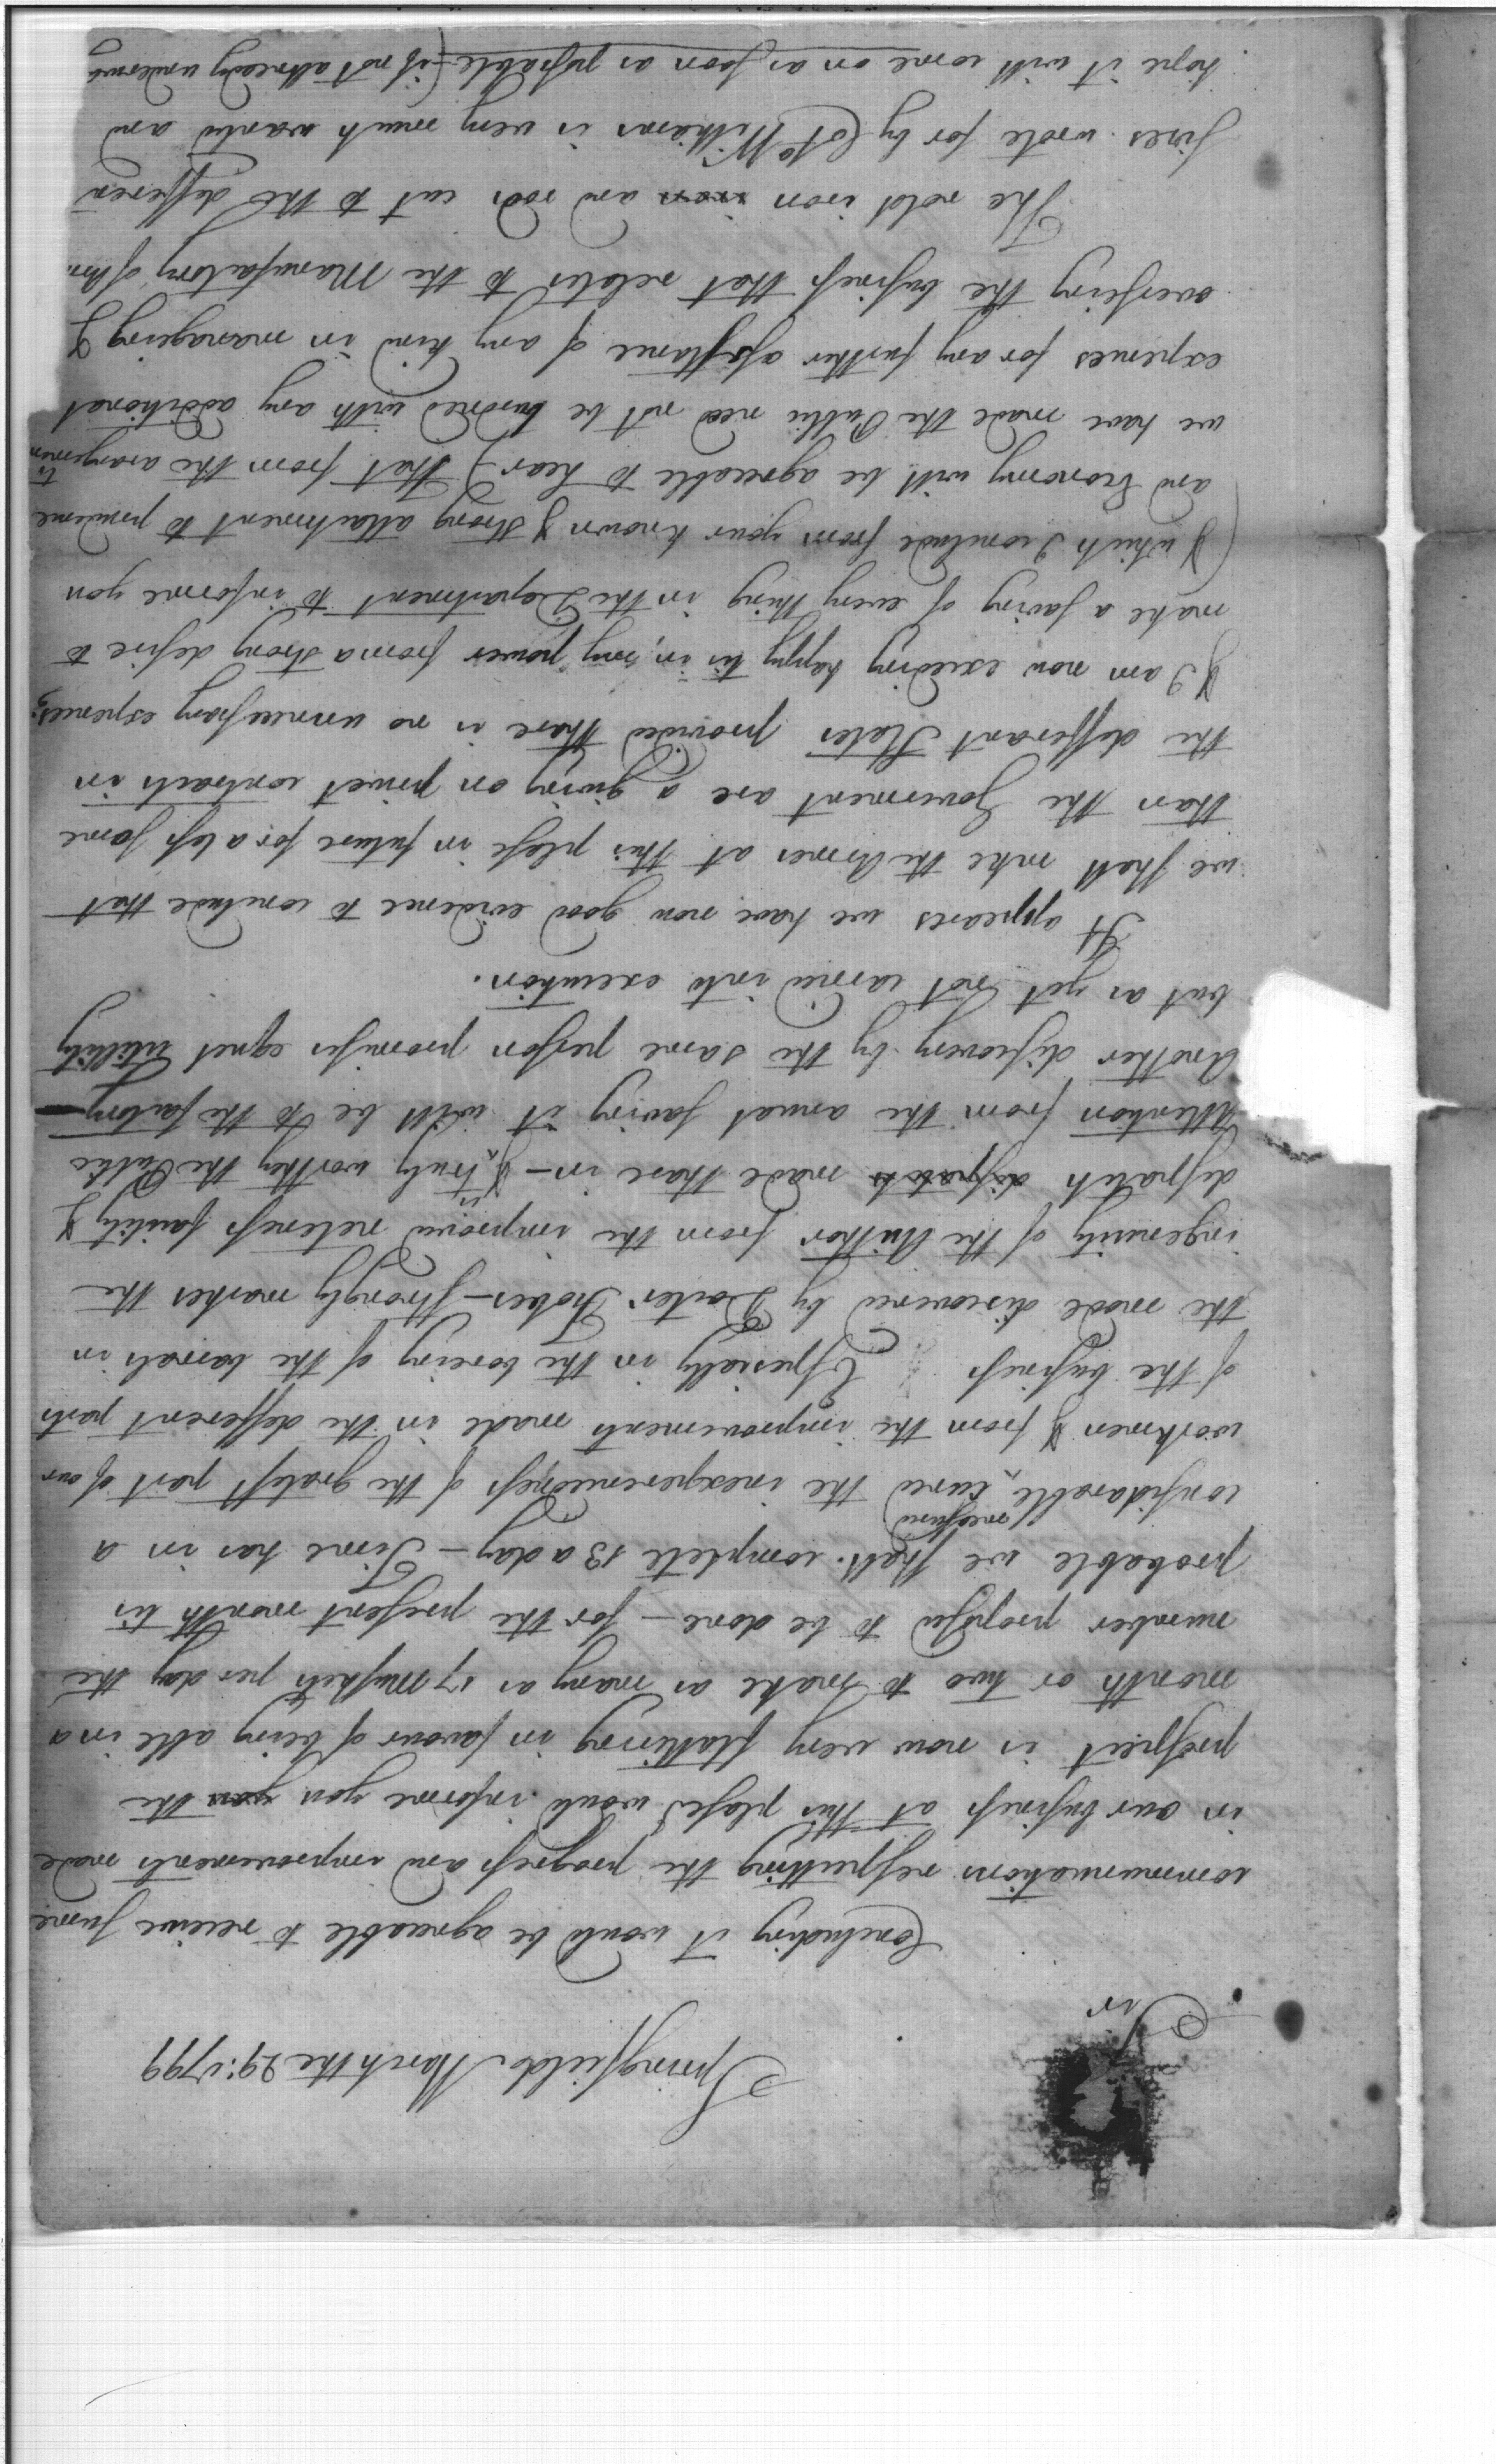 Springfield March the 29: 1799
Sir
Concluding it would be agreeable to receive sume
communications respecting the progress and improvements made
in our business at this plase, would informe you you the
prospect is now very flattiring in favour of being able in a
month or two to make as many as 17 Muskets per day the
number proposed to be done – for the present month tis
probable we shall complete 13 a day – Time has in a
considarable measure cured the inexperiencedness of the gratest part of our
workmen & from the improvements made in the different parts
of the business Espesially in the boreing of the barrals in
the mode discovered by Docter Fobes – strongly markes the
ingenuity of the Auther from the improved neteness facility &
dispatch dispatch made thare in – & is truly worthy the Public
Attention from the anual saving it will be to the factory –
Another discovery by the same person promises eqnel utillity
but as yet not carried into execution.
It appeares we have now good evidence to conclude that
we shall make the Armes at this plase in future for a less some
than the Goverment are a giving on privet contracts in
the differant States provided thare is no unnecessary expences;
& I am now exceding happy tis in my power from a strong desire to
make a saving of every thing in the Department to informe you
(& which I conclude from your known & strong attachment to prudence
and Economy will be agreeable to hear) that from the arangements
we have made the Public need not be burdned with any additional
expences for any further assistance of any kind in manageing &
overseeing the business that relates to the Manufactory of Arms
The rold iron iron and rods cut to the differen
sizes wrote for by Cot. Williams is very much wanted and
hope it will come on as soon as possable (if not allready